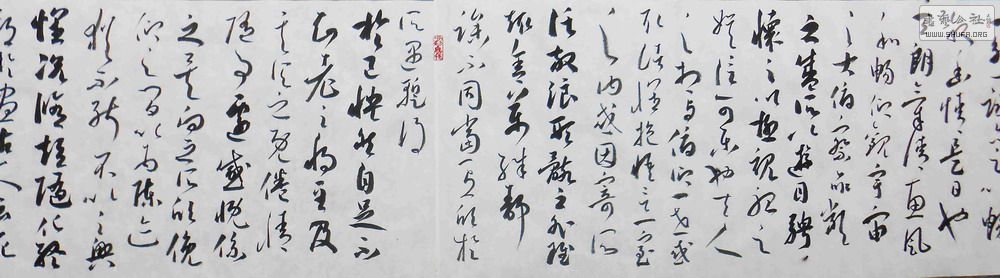 一詠亦足以暢
敘幽情是日也
朗氣清惠風
和暢仰觀宇宙
之大俯察品類
之盛所以遊目騁
懷足以極視聽之
娛信可樂也夫人
之相與俯仰一世或
取諸懷抱悟言一室
之內或因寄所
託放浪形骸之外雖
趣舍萬殊靜
躁不同當其欣於
所遇暫得
於己快然自足不
知老之將至及
其所之既倦情
隨事遷感慨係
之矣向之所欣俛
仰之間以為陳迹
猶不能不以之興
懷況脩短隨化終
期於盡古人云死
公社
www.SHUFA.ORG